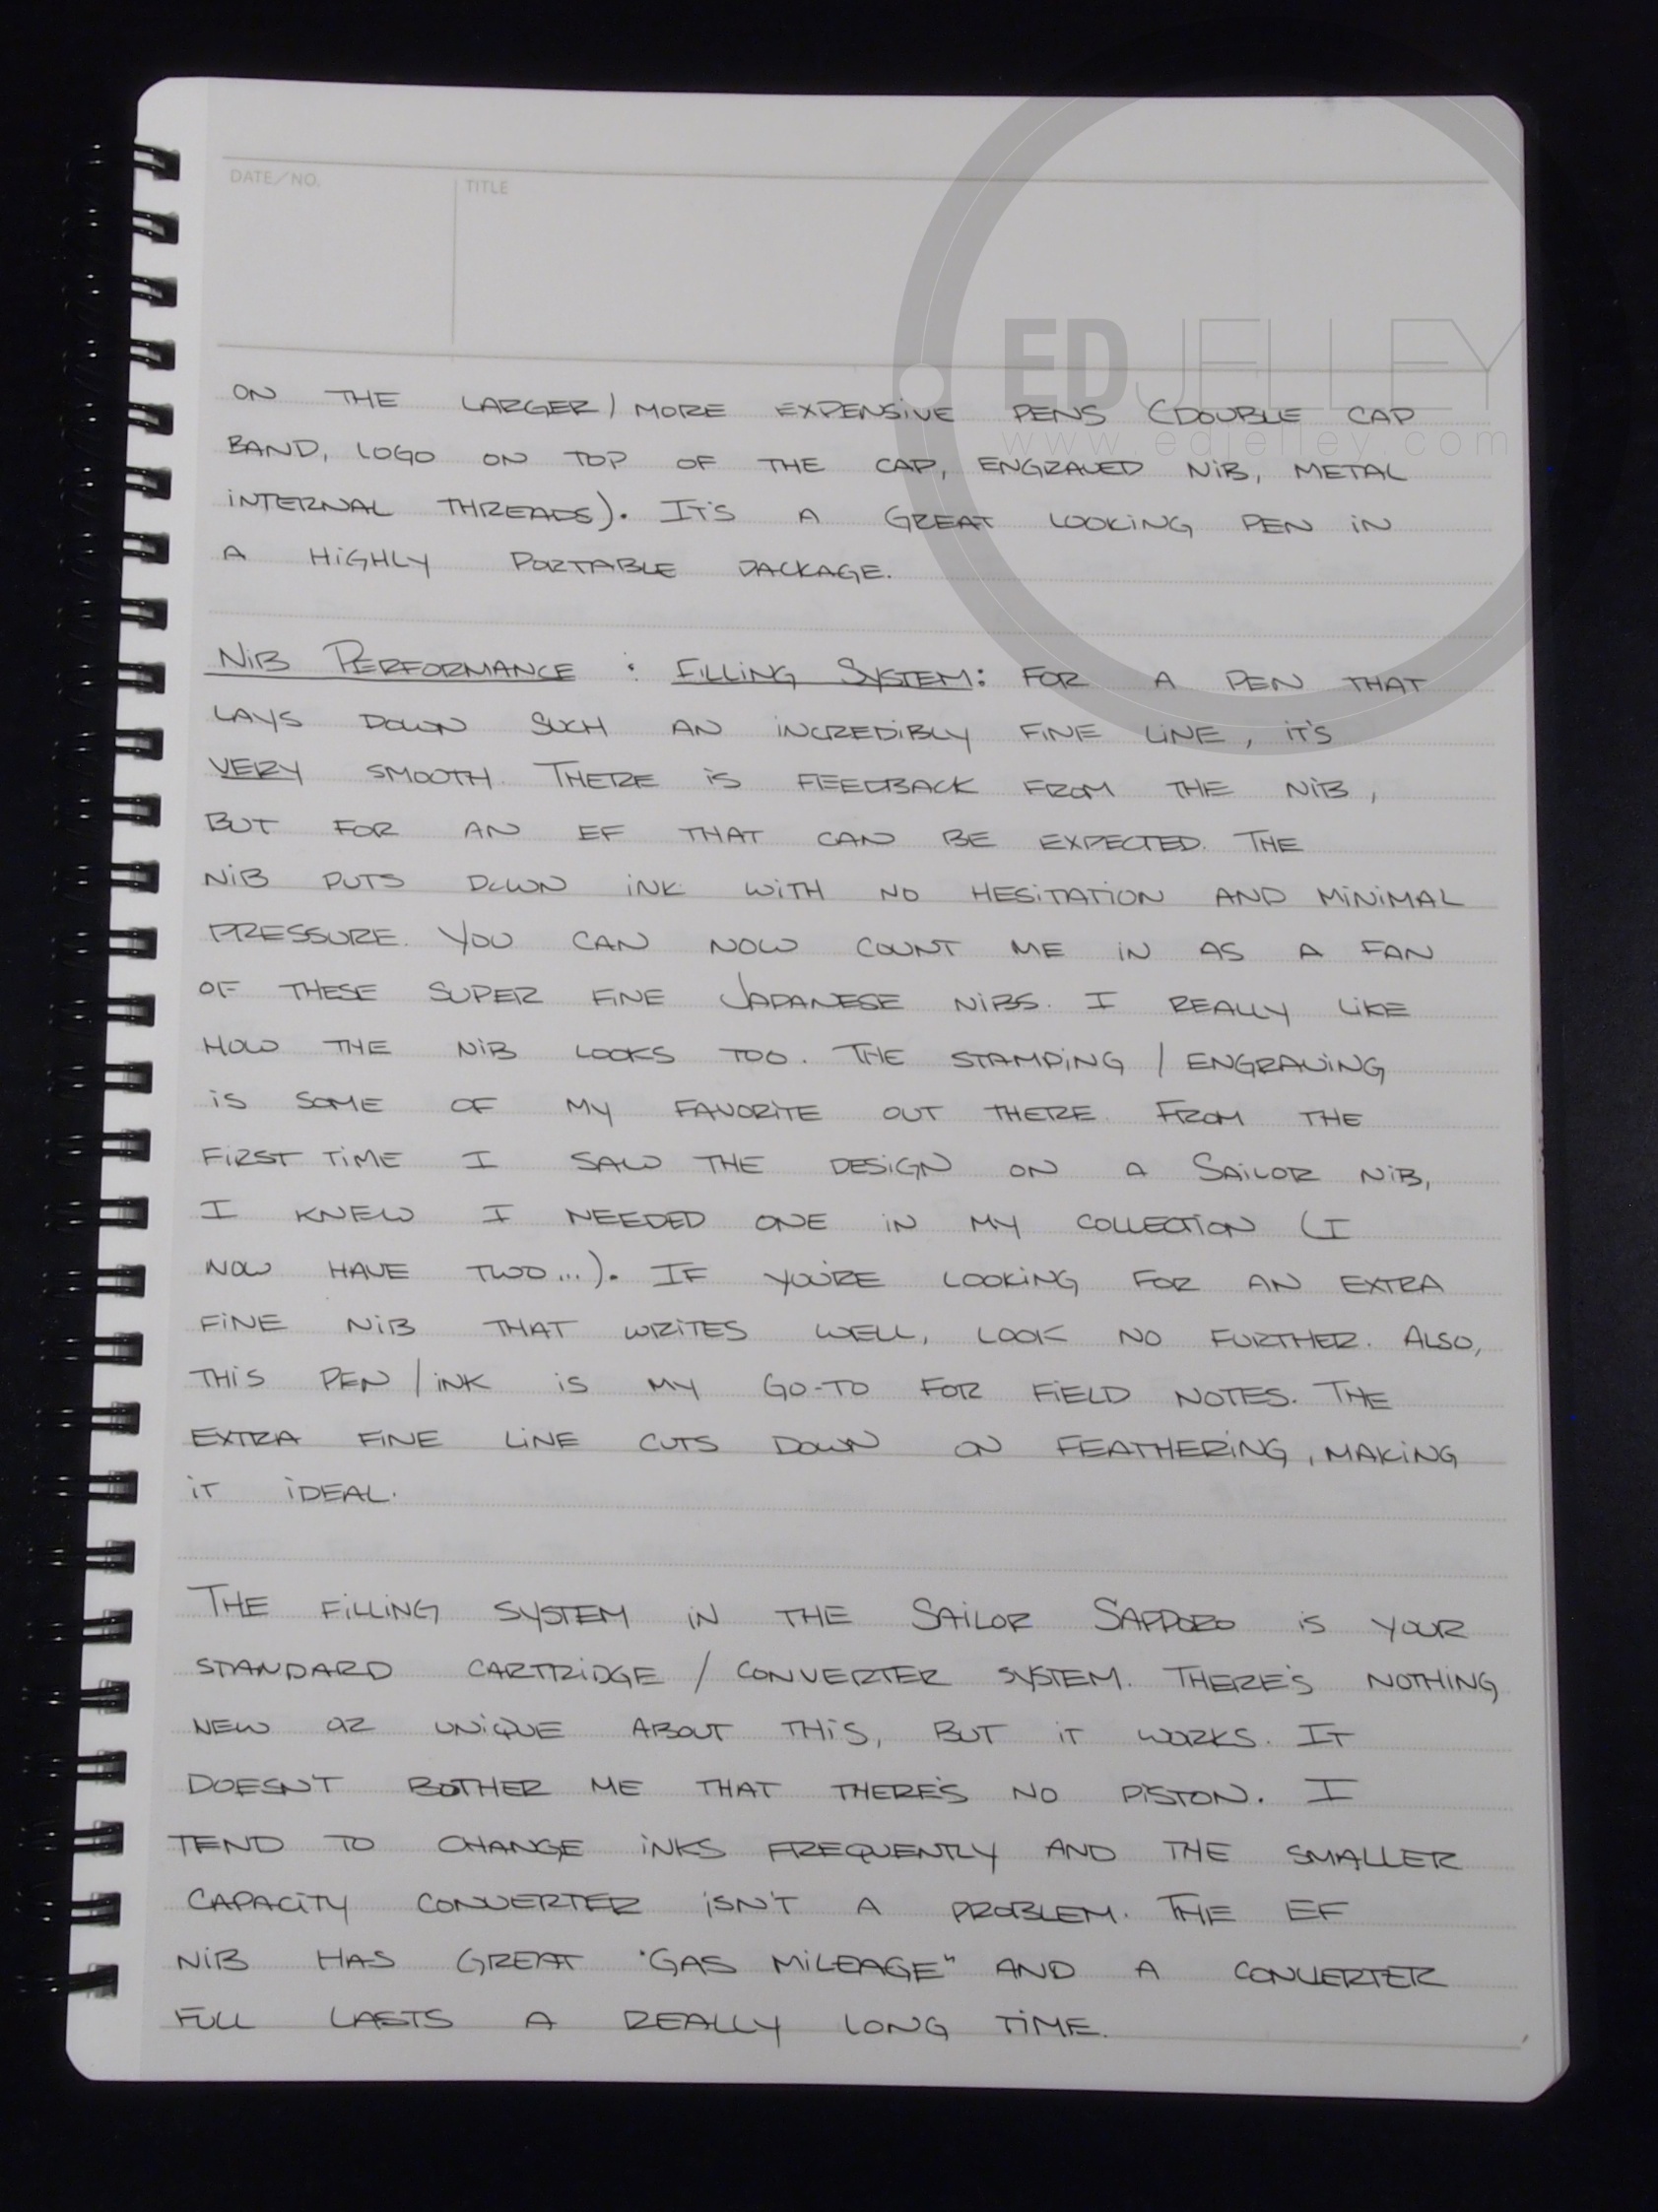 DATE/NO.
TITLE
EDJELLEY
www.edjelley.com
ON THE LARGER / MORE EXPENSIVE PENS (DOUBLE CAP
BAND, LOGO ON TOP OF THE CAP, ENGRAVED NIB, METAL
INTERNAL THREADS). IT'S A GREAT LOOKING PEN IN
A HIGHLY PORTABLE PACKAGE.
NIB PERFORMANCE : FILLING SYSTEM: FOR A PEN THAT
LAYS DOWN SUCH AN INCREDIBLY FINE LINE, IT'S
VERY SMOOTH. THERE IS FEEDBACK FROM THE NIB,
BUT FOR AN EF THAT CAN BE EXPECTED. THE
NIB PUTS DOWN INK WITH NO HESITATION AND MINIMAL
PRESSURE. YOU CAN NOW COUNT ME IN AS A FAN
OF THESE SUPER FINE JAPANESE NIBS. I REALLY LIKE
HOW THE NIB LOOKS TOO. THE STAMPING / ENGRAVING
IS SOME OF MY FAVORITE OUT THERE. FROM THE
FIRST TIME I SAW THE DESIGN ON A SAILOR NIB,
I KNEW I NEEDED ONE IN MY COLLECTION (I
NOW HAVE TWO...). IF YOU'RE LOOKING FOR AN EXTRA
FINE NIB THAT WRITES WELL, LOOK NO FURTHER. ALSO,
THIS PEN / INK IS MY GO-TO FOR FIELD NOTES. THE
EXTRA FINE LINE CUTS DOWN ON FEATHERING, MAKING
IT IDEAL.
THE FILLING SYSTEM IN THE SAILOR SAPPORO IS YOUR
STANDARD CARTRIDGE / CONVERTER SYSTEM. THERE'S NOTHING
NEW OR UNIQUE ABOUT THIS, BUT IT WORKS. IT
DOESN'T BOTHER ME THAT THERE'S NO PISTON. I
TEND TO CHANGE INKS FREQUENTLY AND THE SMALLER
CAPACITY CONVERTER ISN'T A PROBLEM. THE EF
NIB HAS GREAT "GAS MILEAGE" AND A CONVERTER
FULL LASTS A REALLY LONG TIME.